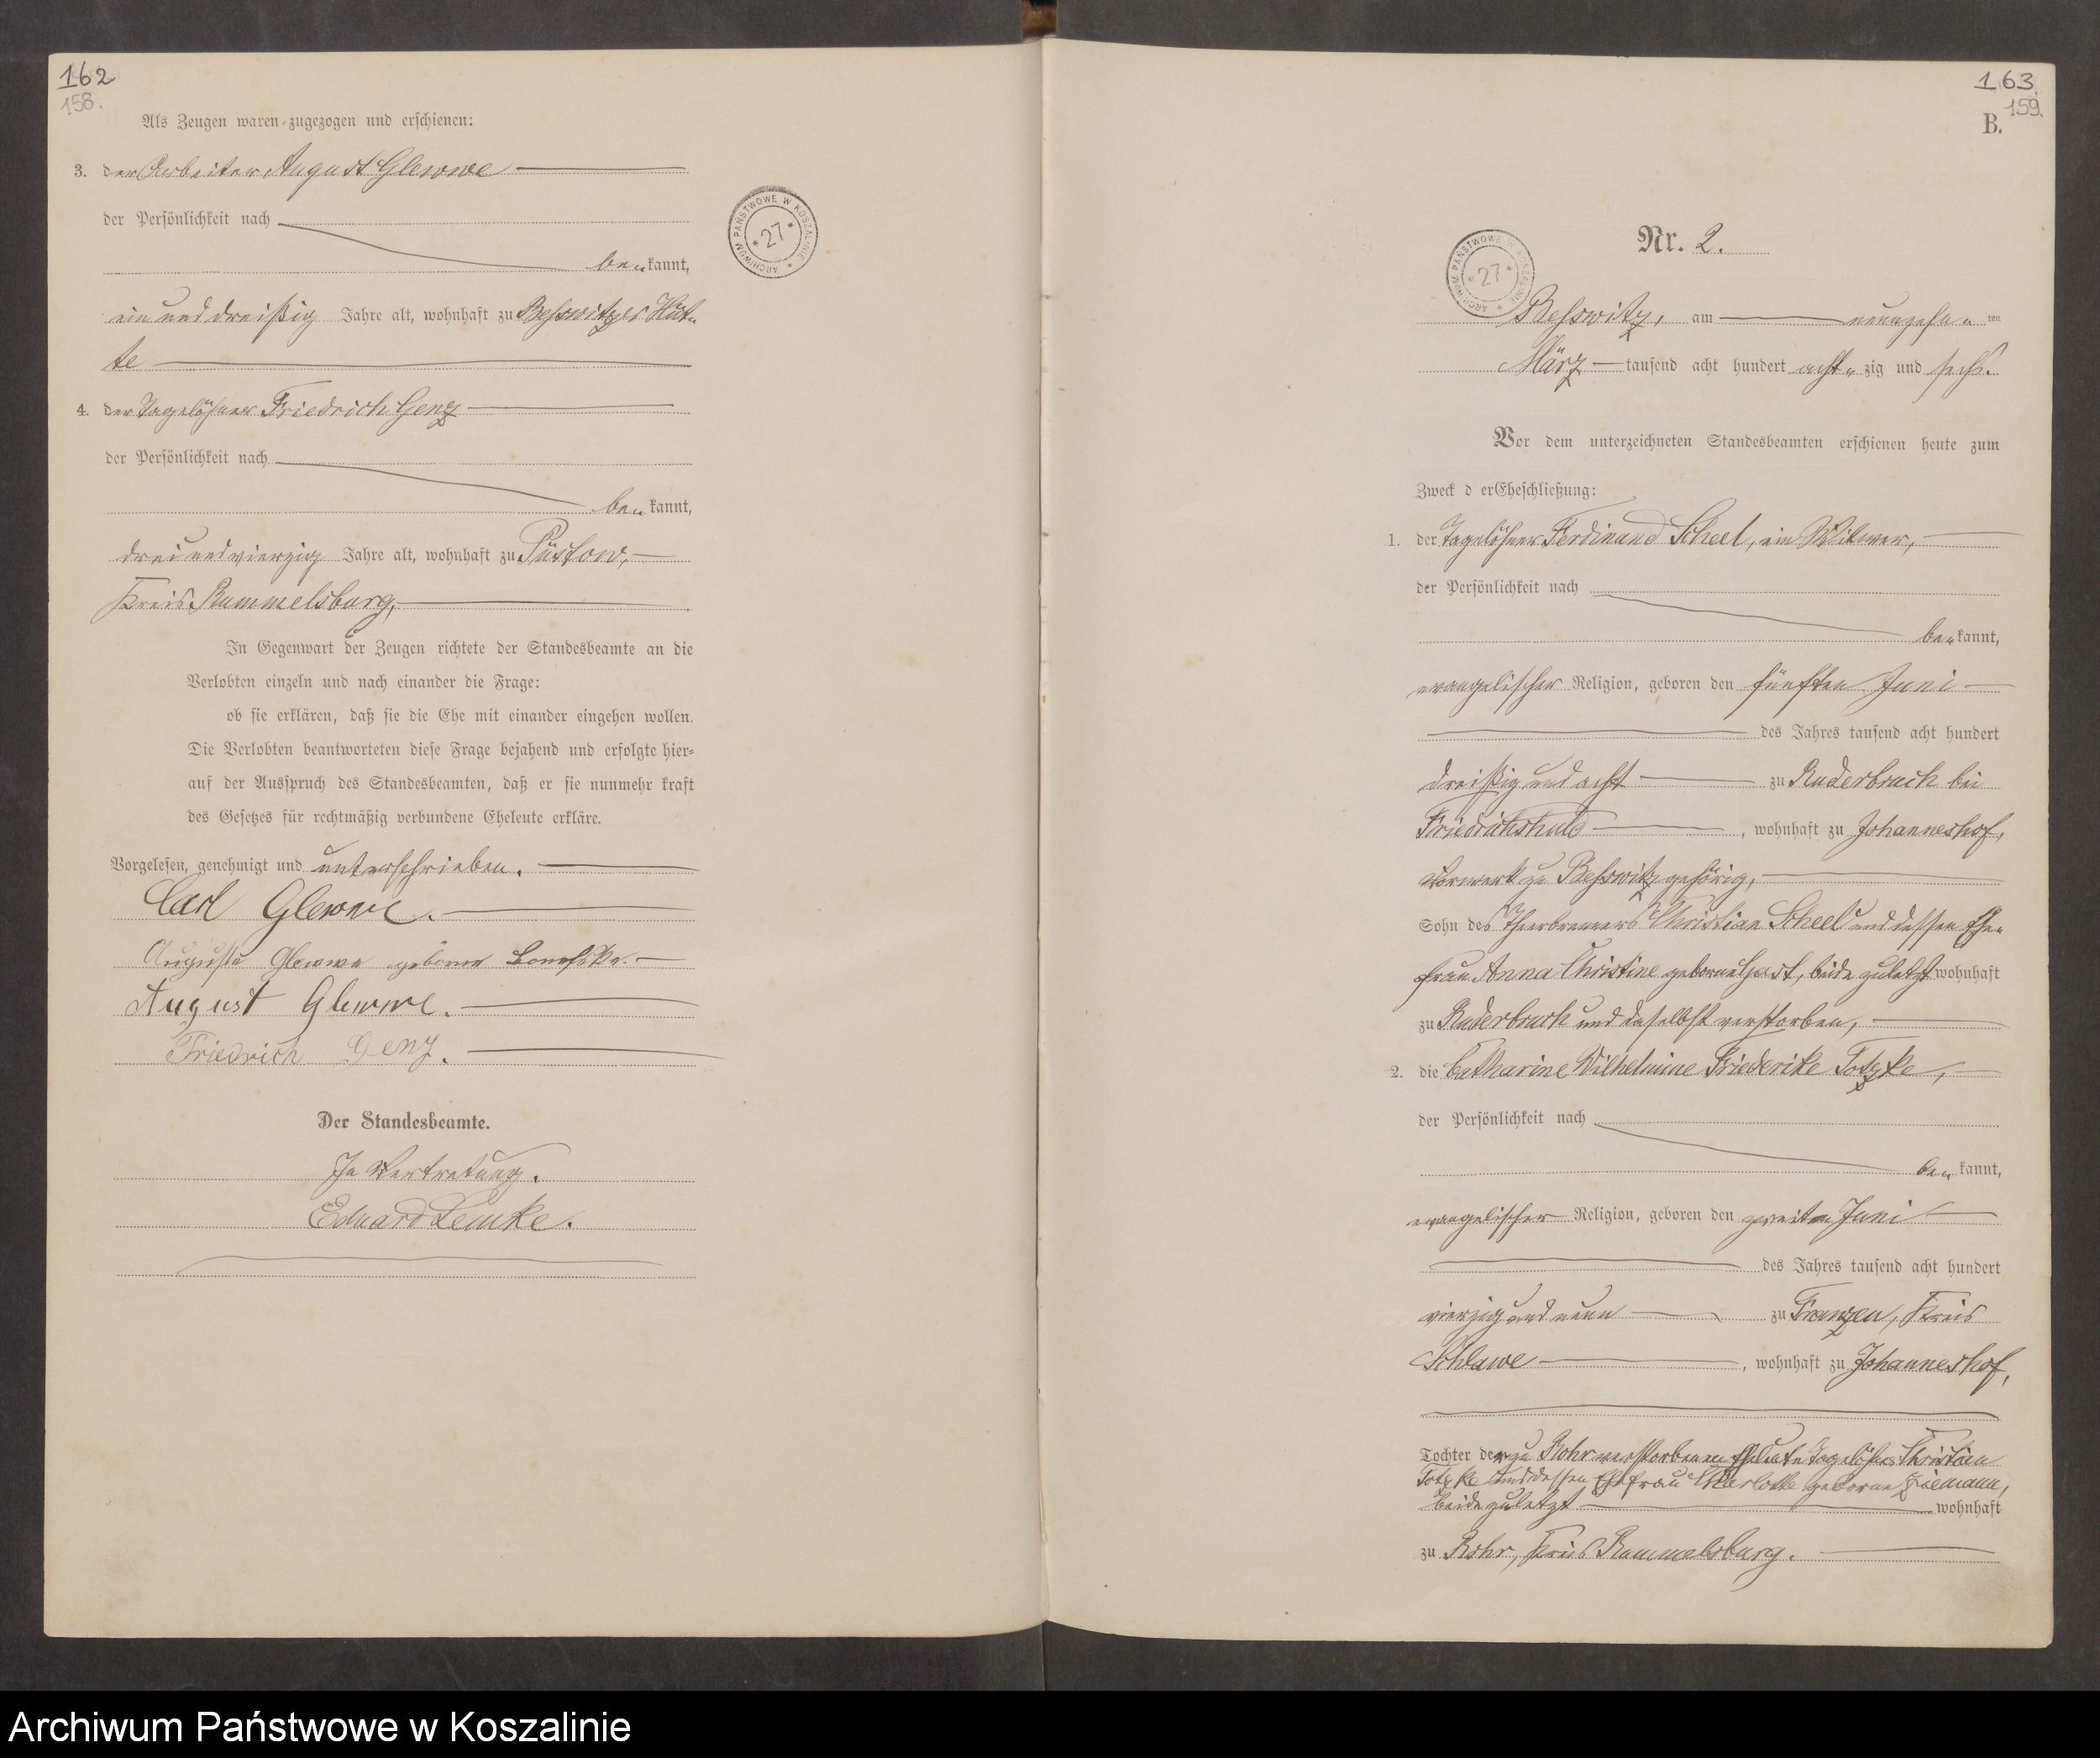 162
158.
Als Zeugen waren zugezogen und erschienen:
3. der Arbeiter August Glewwe
der Persönlichkeit nach
be„kannt,
ein und dreißig Jahre alt, wohnhaft zu Besswitzer Hüt„
te
4. der Tagelöhner Friedrich Genz
der Persönlichkeit nach
be„kannt,
drei und vierzig Jahre alt, wohnhaft zu Püstow,
Kreis Rummelsburg,
In Gegenwart der Zeugen richtete der Standesbeamte an die
Verlobten einzeln und nach einander die Frage:
ob sie erklären, daß sie die Ehe mit einander eingehen wollen.
Die Verlobten beantworteten diese Frage bejahend und erfolgte hier=
auf der Ausspruch des Standesbeamten, daß er sie nunmehr kraft
des Gesetzes für rechtmäßig verbundene Eheleute erkläre.
Vorgelesen, genehmigt und unterschrieben.
Carl Glewwe.
Auguste Glewwe geborne
August Glewwe.
Friedrich Genz.
Der Standesbeamte.
In Vertretung.
Eduard Lemke.
ARCHIWUM PAŃSTWOWE W KOSZALINIE
* 27 *
163
159.
B.
Nr. 2.
ARCHIWUM PAŃSTWOWE W KOSZALINIE
* 27 *
Besswitz, am neunzehn„ten
März tausend acht hundert acht„zig und sechs.
Vor dem unterzeichneten Standesbeamten erschienen heute zum
Zweck d erEheschließung:
1. der Tagelöhner Ferdinand Scheel, ein Witwer,
der Persönlichkeit nach
be„kannt,
evangelischer Religion, geboren den fünften Juni
des Jahres tausend acht hundert
dreißig und acht zu Ruderbruch bei
Friedrichshuld, wohnhaft zu Johanneshof,
Vorwerk zu Besswitz gehörig,
Sohn des Theerbrenners Christian Scheel und dessen Ehe„
frau Anna Christine geborne Gast, beide zuletzt wohnhaft
zu Ruderbruch und daselbst verstorben,
2. die Catharine Wilhelmine Friederike Totzke,
der Persönlichkeit nach
be„kannt,
evangelischer Religion, geboren den zweiten Juni
des Jahres tausend acht hundert
vierzig und neun zu Franzen, Kreis
Schlawe, wohnhaft zu Johanneshof,
Tochter der zu Rohr verstorbenen Eheleute Tagelöhner Christian
Totzke und dessen Ehefrau Charlotte geborne Ziemann,
beide zuletzt wohnhaft
zu Rohr, Kreis Rummelsburg.
Archiwum Państwowe w Koszalinie